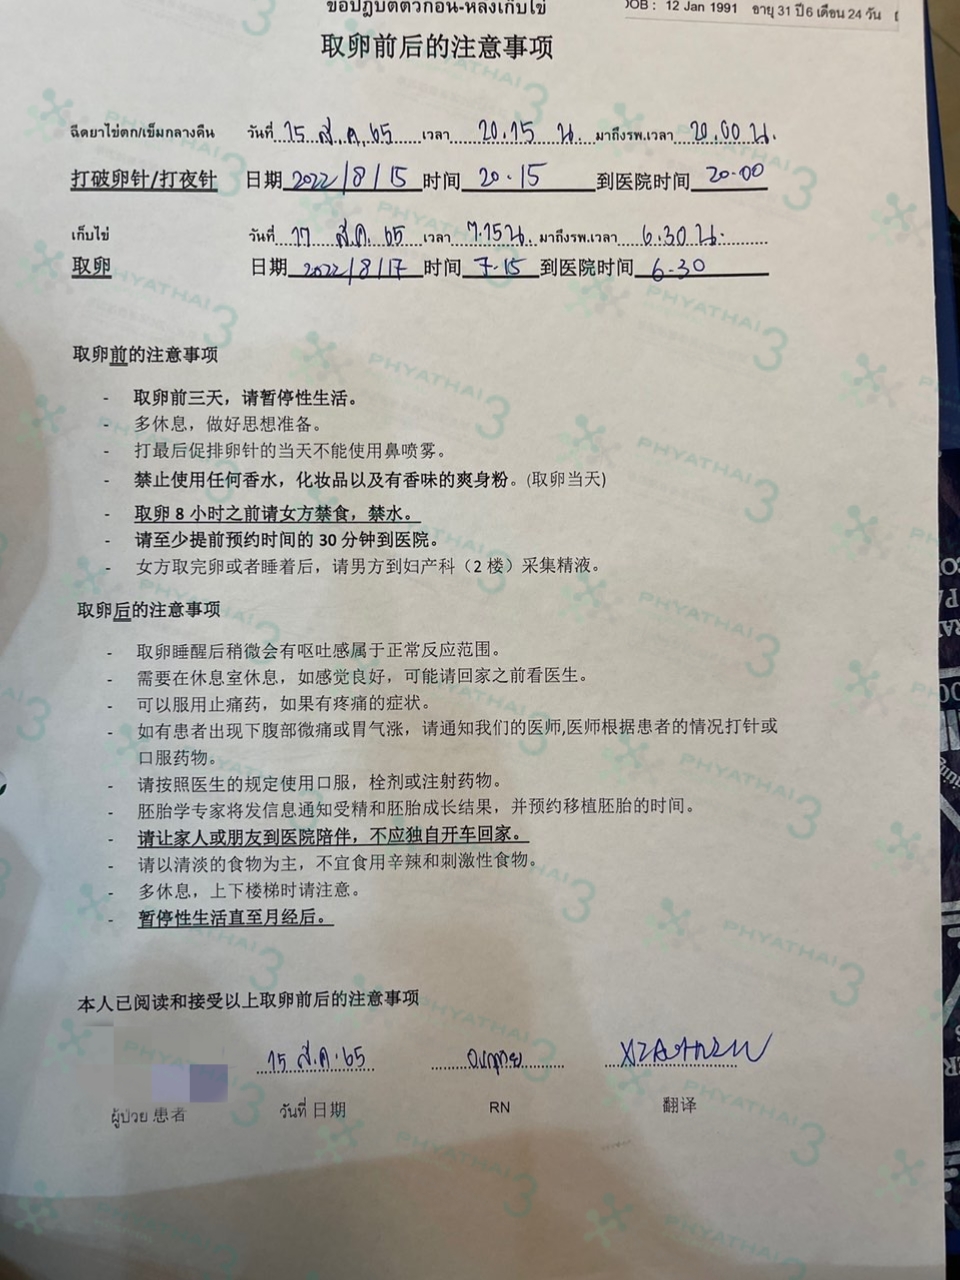 ข้อปฏิบัติตัวก่อน-หลังเก็บไข่
DOB : 12 Jan 1991 อายุ 31 ปี 6 เดือน 24 วัน
取卵前后的注意事项
ฉีดยาไข่ตก/เข็มกลางคืน วันที่ 15 ส.ค. 65 เวลา 20.15 น. มาถึงรพ.เวลา 20.00 น.
打破卵针/打夜针 日期 2022/8/15 时间 20-15 到医院时间 20-00
เก็บไข่ วันที่ 17 ส.ค. 65 เวลา 7.15 น. มาถึงรพ.เวลา 6.30 น.
取卵 日期 2022/8/17 时间 7-15 到医院时间 6-30
取卵前的注意事项
- 取卵前三天，请暂停性生活。
- 多休息，做好思想准备。
- 打最后促排卵针的当天不能使用鼻喷雾。
- 禁止使用任何香水，化妆品以及有香味的爽身粉。(取卵当天)
- 取卵 8 小时之前请女方禁食，禁水。
- 请至少提前预约时间的 30 分钟到医院。
- 女方取完卵或者睡着后，请男方到妇产科（2 楼）采集精液。
取卵后的注意事项
- 取卵睡醒后稍微会有呕吐感属于正常反应范围。
- 需要在休息室休息，如感觉良好，可能请回家之前看医生。
- 可以服用止痛药，如果有疼痛的症状。
- 如有患者出现下腹部微痛或胃气涨，请通知我们的医师,医师根据患者的情况打针或
口服药物。
- 请按照医生的规定使用口服，栓剂或注射药物。
- 胚胎学专家将发信息通知受精和胚胎成长结果，并预约移植胚胎的时间。
- 请让家人或朋友到医院陪伴，不应独自开车回家。
- 请以清淡的食物为主，不宜食用辛辣和刺激性食物。
- 多休息，上下楼梯时请注意。
- 暂停性生活直至月经后。
本人已阅读和接受以上取卵前后的注意事项
15 ส.ค. 65
ผู้ป่วย 患者 วันที่ 日期 RN 翻译
PHYATHAI 3